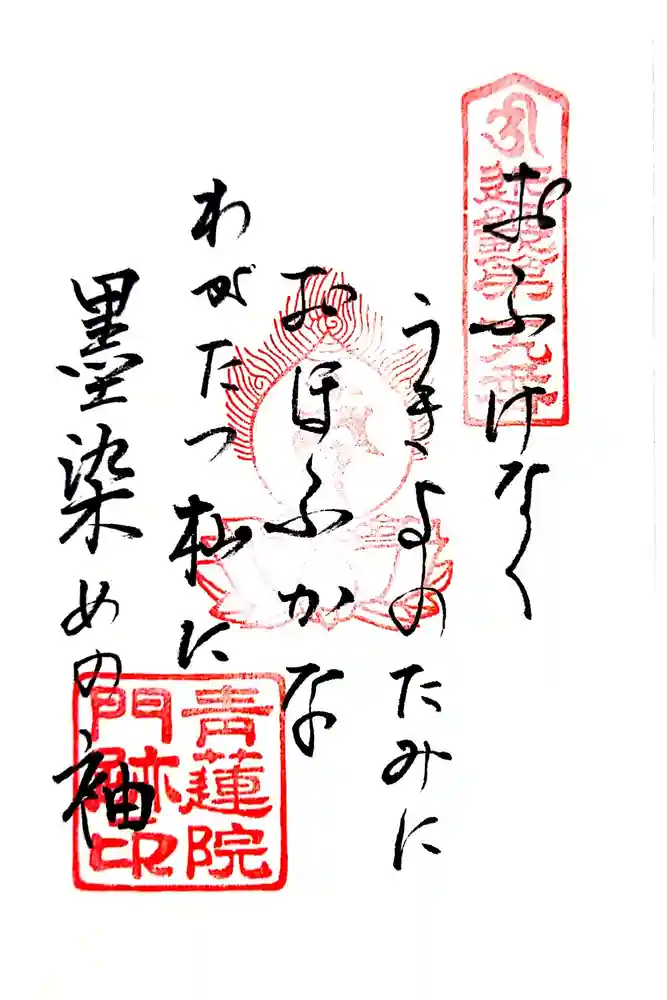 おふけなく
うきよのたみに
おほふかな
わがたつ杣に
墨染めの袖
青蓮院
門跡印